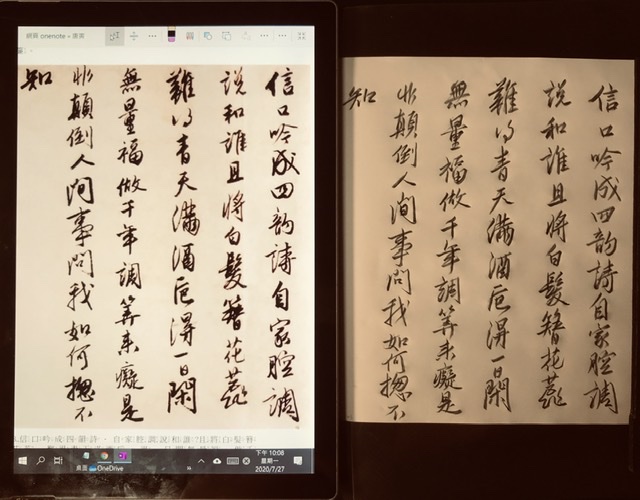 網頁 onenote
信口吟成四韵詩自家腔調
說和誰且將白髮簪花蕊
難得青天滿酒卮得一日閑
無量福做千年調算來癡是
非顛倒人間事問我如何揔不
知
信口吟成四韻詩,自家腔調說和誰?且將白髮簪
桌面 OneDrive
下午 10:08
星期一
2020/7/27
信口吟成四韵詩自家腔調
說和誰且將白髮簪花蕊
難得青天滿酒卮得一日閑
無量福做千年調算來癡是
非顛倒人間事問我如何揔不
知